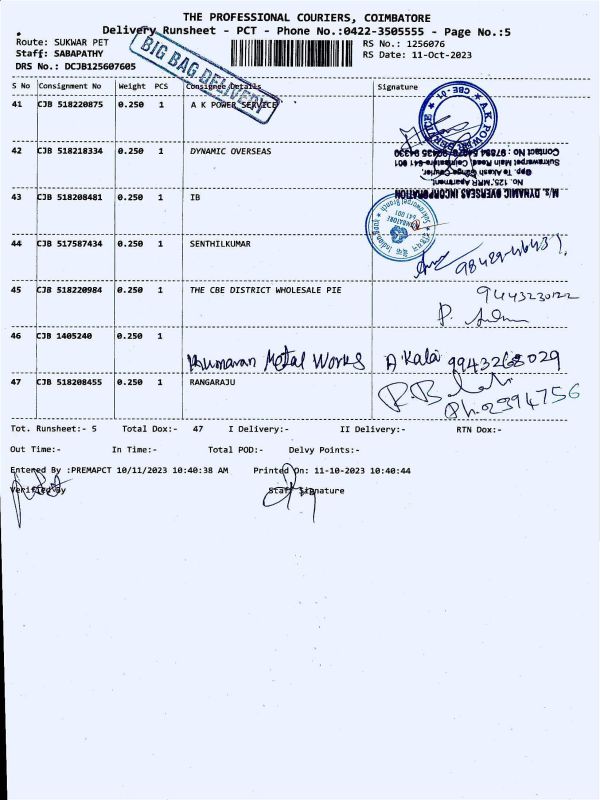 THE PROFESSIONAL COURIERS, COIMBATORE
Delivery Runsheet - PCT - Phone No.:0422-3505555 - Page No.:5
Route: SUKWAR PET
RS No.: 1256076
Staff: SABAPATHY
RS Date: 11-Oct-2023
DRS No.: DCJB125607605
BIG BAG DELIVERY
S No Consignment No Weight PCS Consignee Details Signature
41 CJB 518220875 0.250 1 A K POWER SERVICE
A.K. POWER SERVICE * CBE-01 *
42 CJB 518218334 0.250 1 DYNAMIC OVERSEAS
M/s. DYNAMIC OVERSEAS INCORPORATION
No. 125, MRR Apartment,
Opp. To Akash Ganga Courier,
Sukrawarpet Main Road, Coimbatore-641 001
43 CJB 518208481 0.250 1 IB
Indian Bank
COIMBATORE
641 001
44 CJB 517587434 0.250 1 SENTHILKUMAR
45 CJB 518220984 0.250 1 THE CBE DISTRICT WHOLESALE PIE
9443230122
46 CJB 1405240 0.250 1
Kumaran Metal Works A.Kala 9943268029
47 CJB 518208455 0.250 1 RANGARAJU
Ph:2394756
Tot. Runsheet:- 5 Total Dox:- 47 I Delivery:- II Delivery:- RTN Dox:-
Out Time:- In Time:- Total POD:- Delvy Points:-
Entered By :PREMAPCT 10/11/2023 10:40:38 AM Printed On: 11-10-2023 10:40:44
Verified By Staff Signature